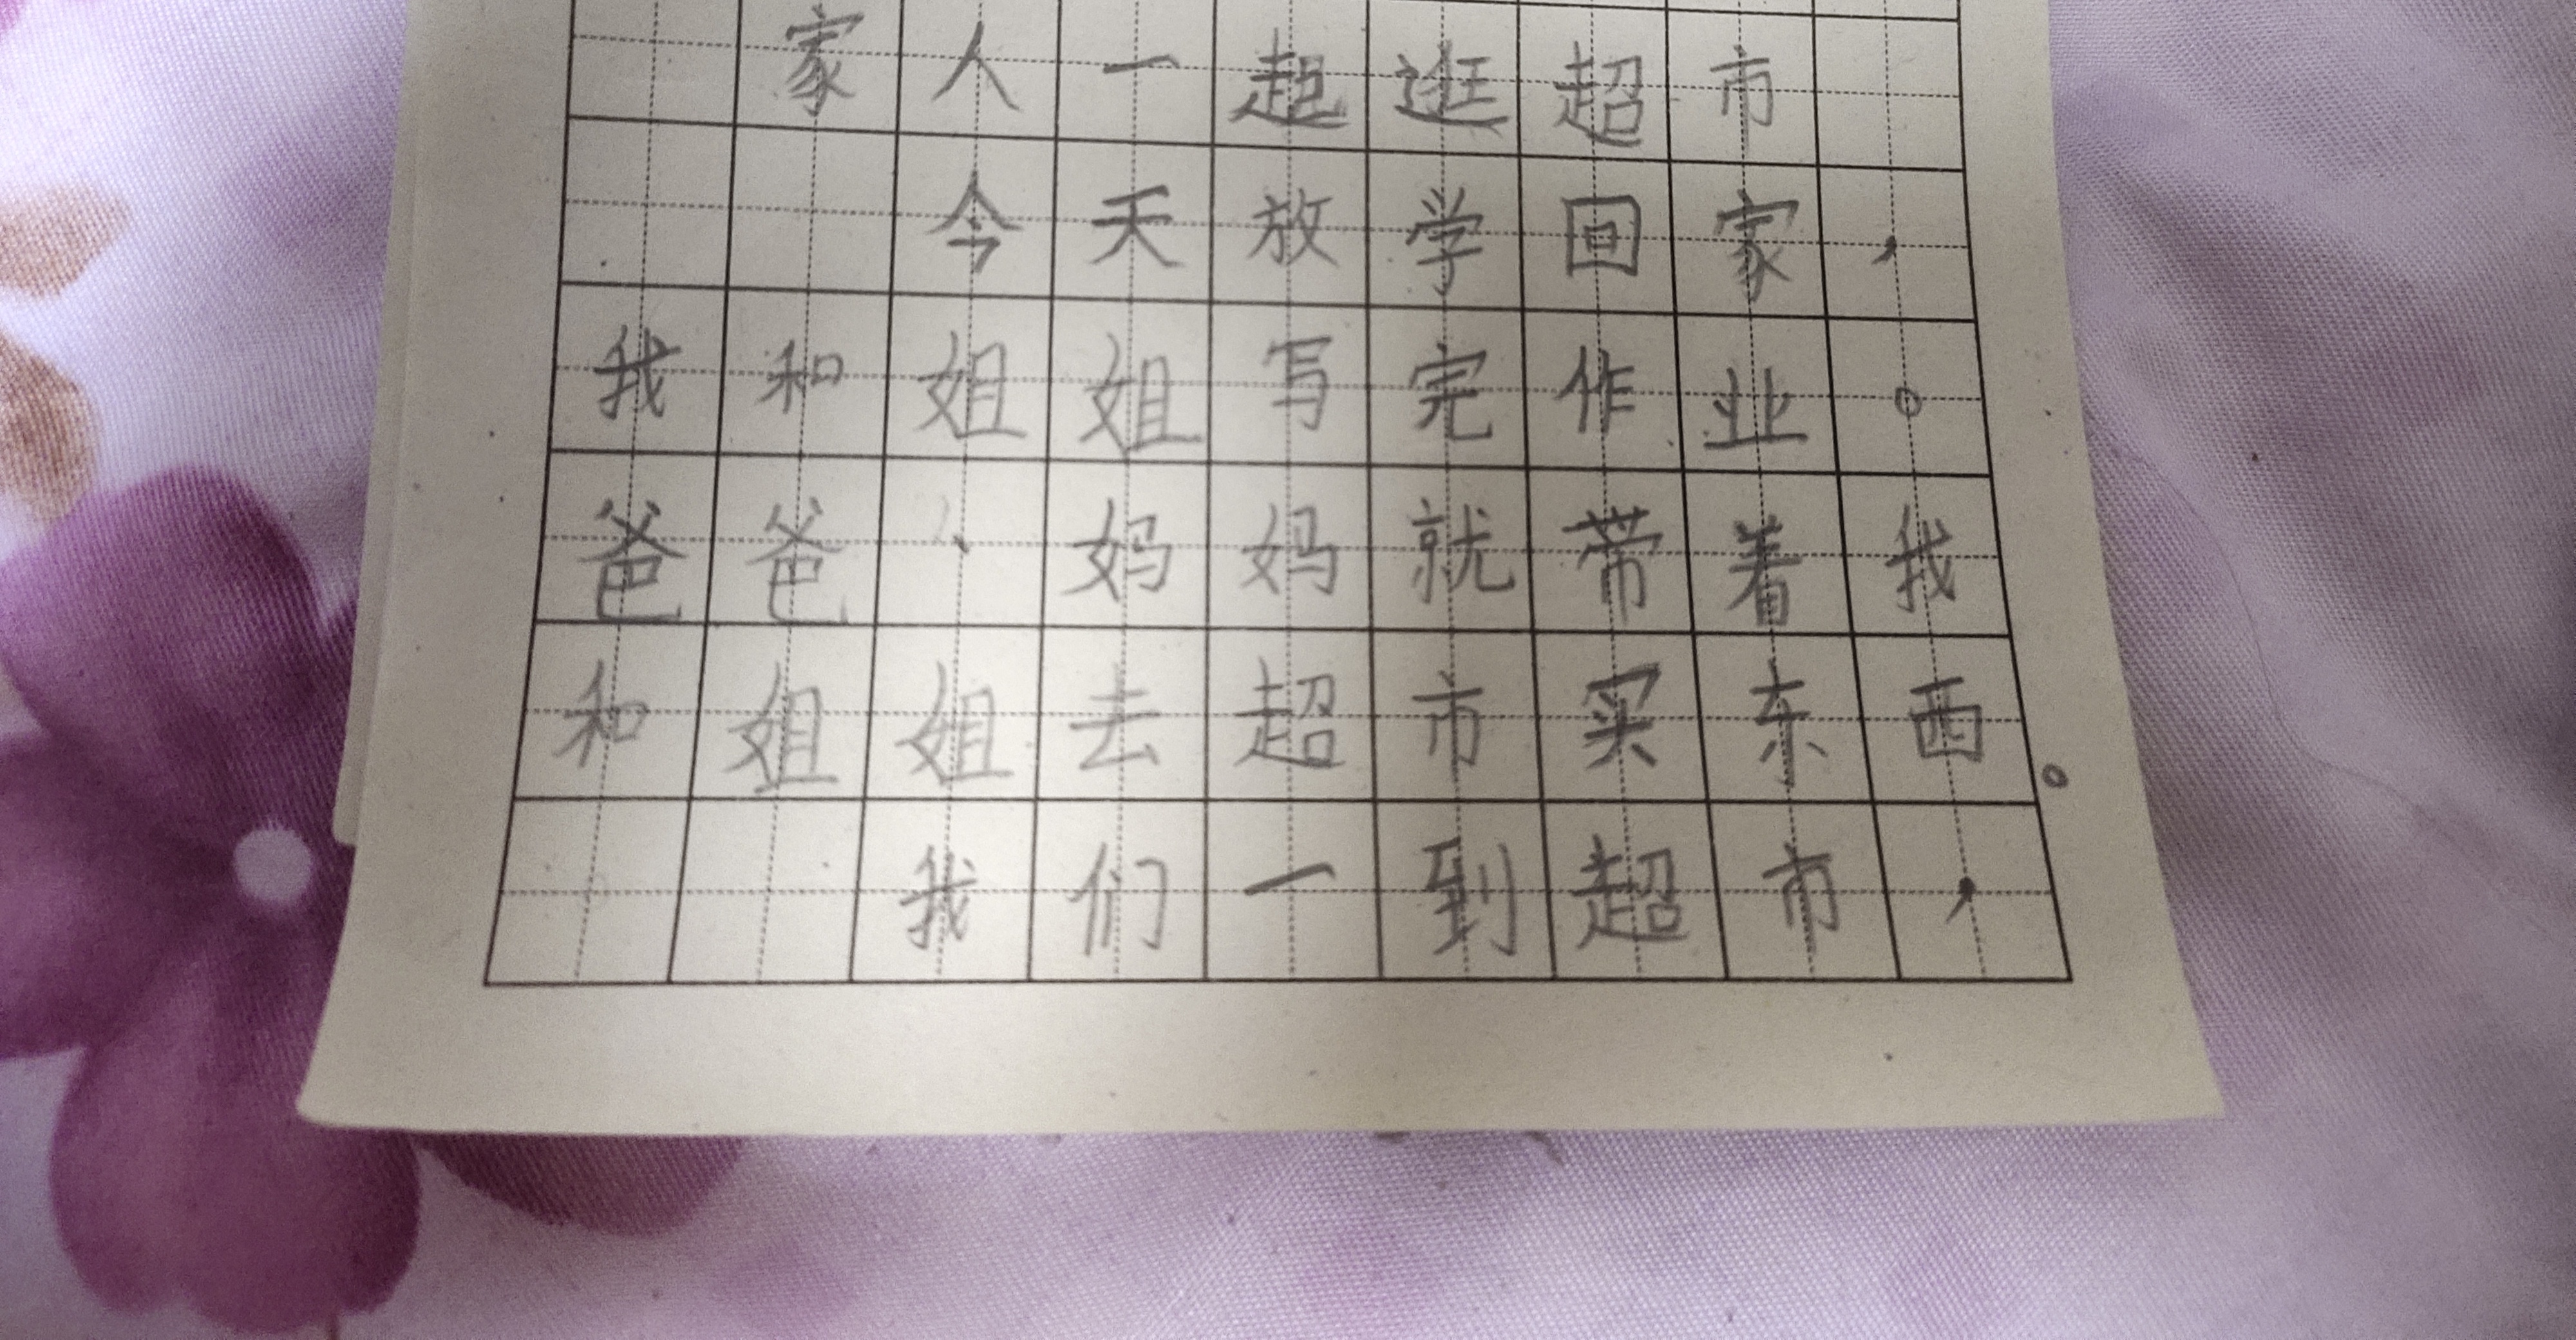 家人一起逛超市
今天放学回家，
我和姐姐写完作业。
爸爸、妈妈就带着我
和姐姐去超市买东西。
我们一到超市，